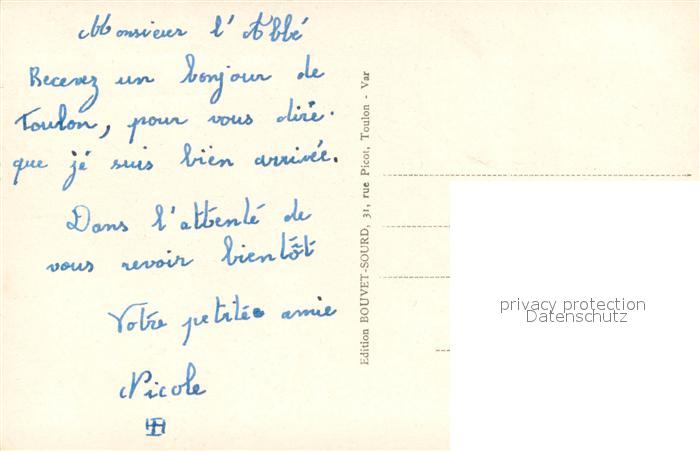 Monsieur l'Abbé
Recevez un bonjour de
Toulon, pour vous dire
que je suis bien arrivée.
Dans l'attente de
vous revoir bientôt
Votre petite amie
Nicole
Edition BOUVET-SOURD, 31, rue Picot, Toulon - Var
privacy protection
Datenschutz